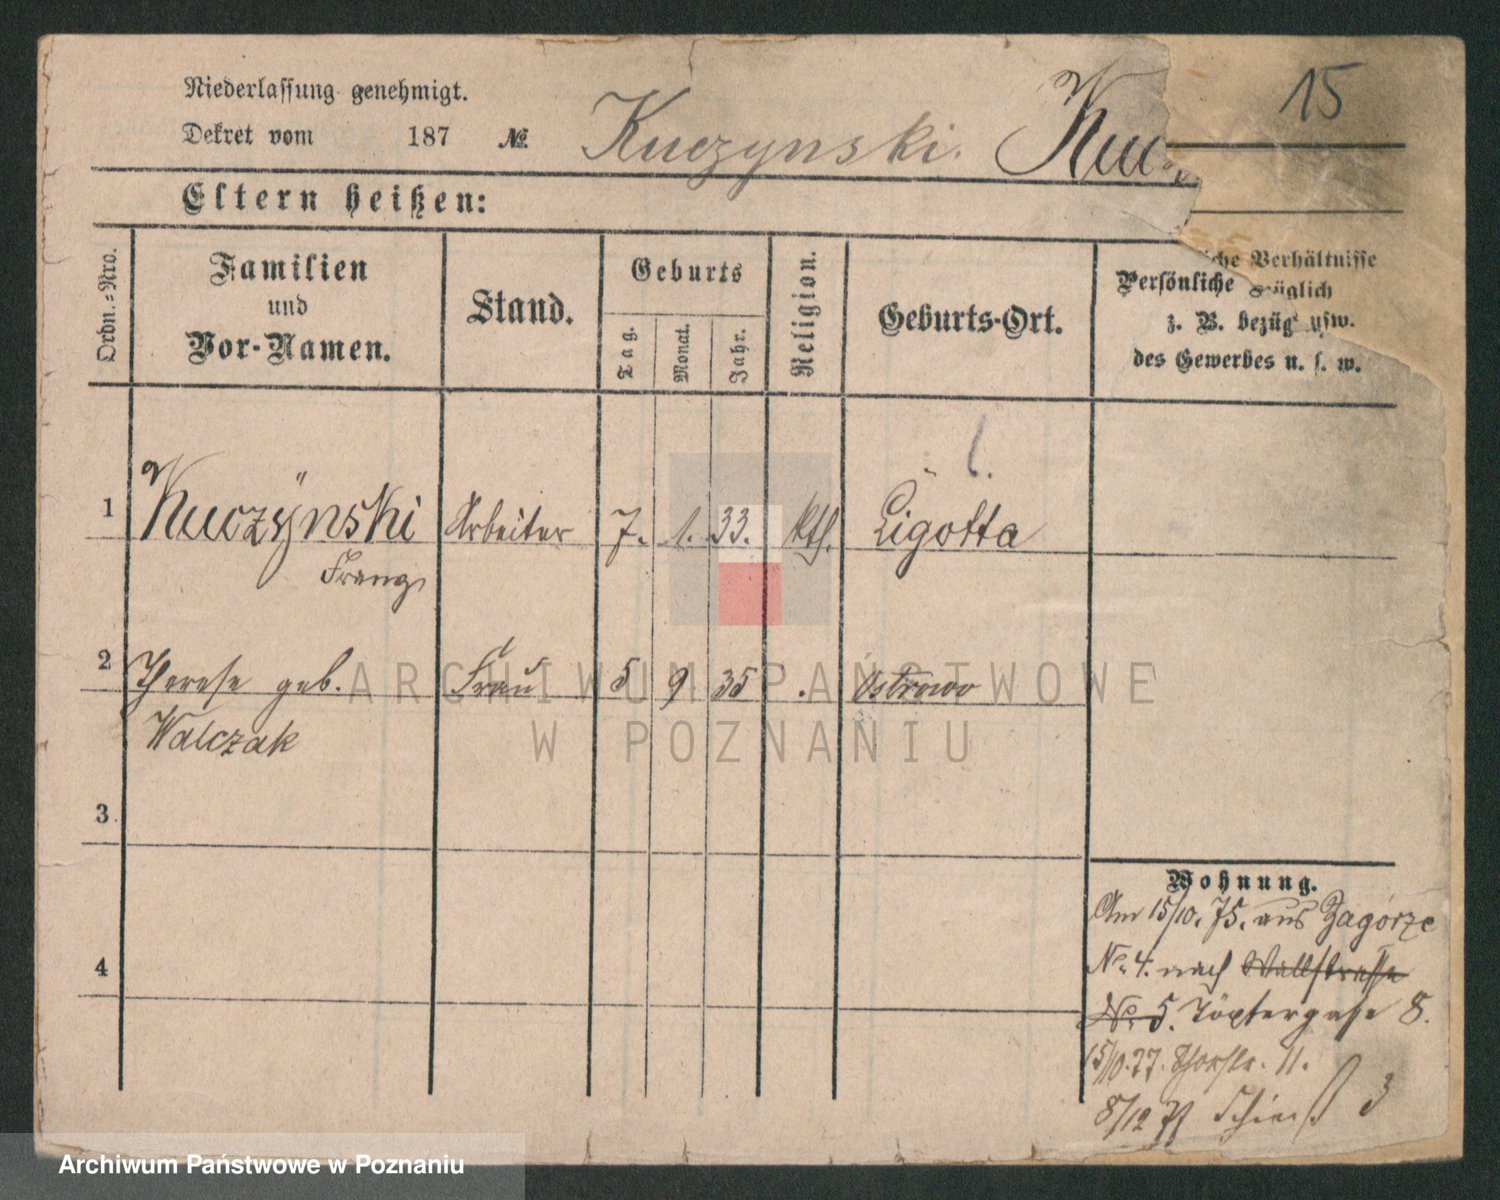 15
Niederlassung genehmigt.
Dekret vom 187 № Kuczynski. Kuc
Eltern heißen:
Ordn.-Nro.
Familien
und
Vor-Namen.
Stand.
Geburts
Tag.
Monat.
Jahr.
Religion.
Geburts-Ort.
iche Verhältnisse
Persönliche üglich
z. B. bezüg usw.
des Gewerbes u. s. w.
1 Kuczÿnski Arbeiter 7. 1. 33. kth. Ligotta
Franz
2 Therese geb. Frau 5 9 35 . Ostrowo
Walczak
3
4
Wohnung.
Am 15/10. 75. aus Zagórze
No. 4. nach Wallstrasse
No. 5. Töpfergasse 8.
15/10.77. Thorstr. 11.
8/12 3
ARCHIWUM PAŃSTWOWE
W POZNANIU
Archiwum Państwowe w Poznaniu